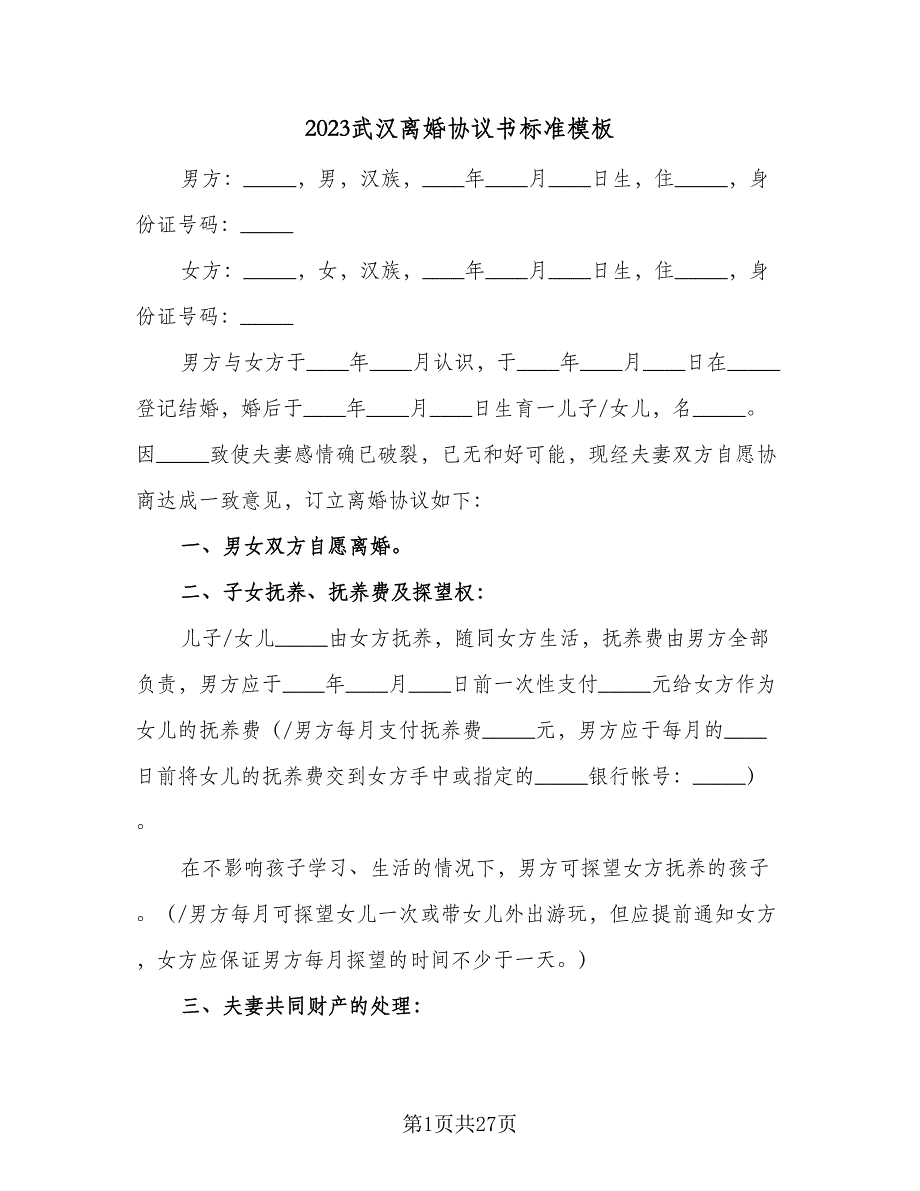 2023武汉离婚协议书标准模板
男方：_____，男，汉族，____年____月____日生，住_____，身
份证号码：_____
女方：_____，女，汉族，____年____月____日生，住_____，身
份证号码：_____
男方与女方于____年____月认识，于____年____月____日在_____
登记结婚，婚后于____年____月____日生育一儿子/女儿，名_____。
因_____致使夫妻感情确已破裂，已无和好可能，现经夫妻双方自愿协
商达成一致意见，订立离婚协议如下：
一、男女双方自愿离婚。
二、子女抚养、抚养费及探望权：
儿子/女儿_____由女方抚养，随同女方生活，抚养费由男方全部
负责，男方应于____年____月____日前一次性支付_____元给女方作为
女儿的抚养费（/男方每月支付抚养费_____元，男方应于每月的____
日前将女儿的抚养费交到女方手中或指定的_____银行帐号：_____）
。
在不影响孩子学习、生活的情况下，男方可探望女方抚养的孩子
。（/男方每月可探望女儿一次或带女儿外出游玩，但应提前通知女方
，女方应保证男方每月探望的时间不少于一天。）
三、夫妻共同财产的处理：
第1页共27页